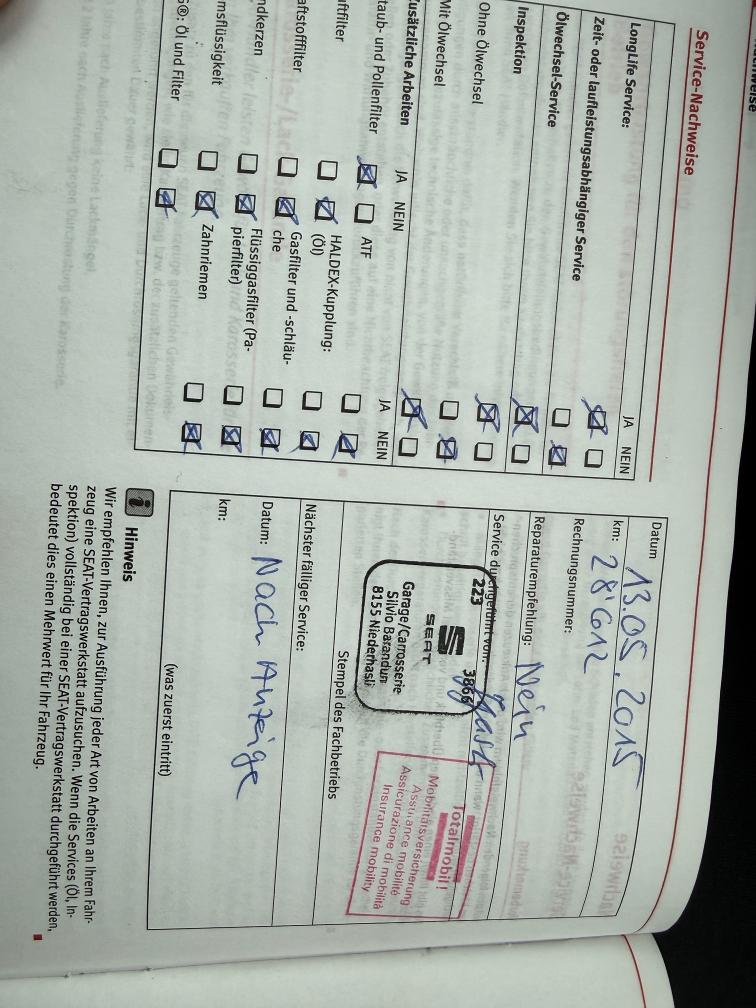 Service-Nachweise
LongLife Service:
JA NEIN
Zeit- oder laufleistungsabhängiger Service
Ölwechsel-Service
Inspektion
Ohne Ölwechsel
Mit Ölwechsel
Zusätzliche Arbeiten
JA NEIN
JA NEIN
taub- und Pollenfilter
ATF
uftfilter
HALDEX-Kupplung:
(Öl)
aftstofffilter
Gasfilter und -schläu-
che
ndkerzen
Flüssiggasfilter (Pa-
pierfilter)
msflüssigkeit
Zahnriemen
G®: Öl und Filter
Datum 13.05.2015
km: 28'612
Rechnungsnummer:
Reparaturempfehlung: Nein
Service durchgeführt von:
223 3866
SEAT
Garage/Carrosserie
Silvio Barandun
8155 Niederhasli
Totalmobil!
Mobilitätsversicherung
Assurance mobilité
Assicurazione di mobilità
Insurance mobility
Stempel des Fachbetriebs
Nächster fälliger Service:
Datum: Nach Anzeige
km:
(was zuerst eintritt)
Hinweis
Wir empfehlen Ihnen, zur Ausführung jeder Art von Arbeiten an Ihrem Fahr-
zeug eine SEAT-Vertragswerkstatt aufzusuchen. Wenn die Services (Öl, In-
spektion) vollständig bei einer SEAT-Vertragswerkstatt durchgeführt werden,
bedeutet dies einen Mehrwert für Ihr Fahrzeug.